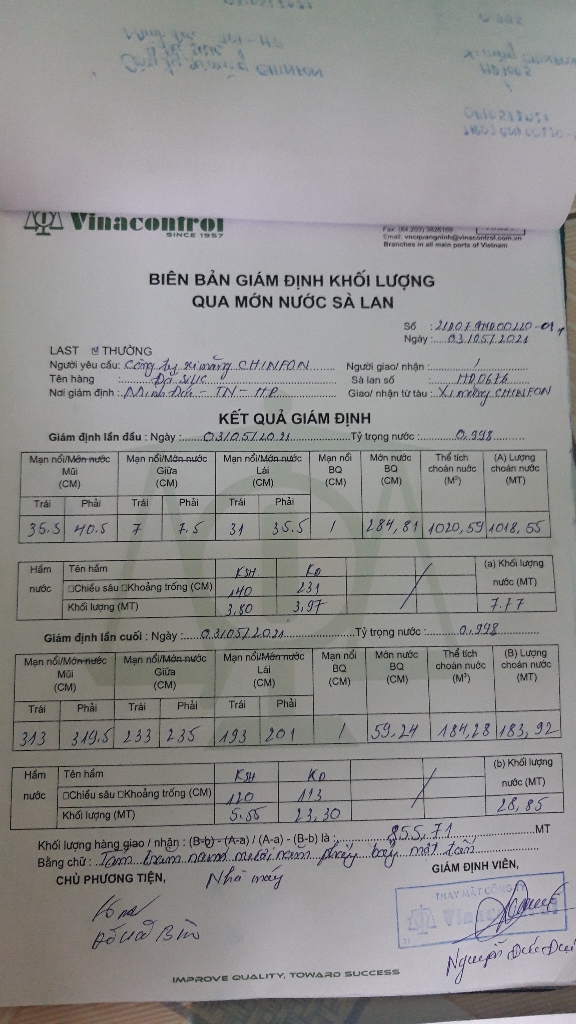 Vinacontrol
SINCE 1957
Email: vncquangninh@vinacontrol.com.vn
Branches in all main ports of Vietnam
BIÊN BẢN GIÁM ĐỊNH KHỐI LƯỢNG
QUA MỚN NƯỚC SÀ LAN
Số :
Ngày : 03/05/2021
LAST THƯỜNG
Người yêu cầu: Công ty xi măng CHINFON Người giao/ nhận : /
Tên hàng : Đá Sà lan số :
Nơi giám định : Minh Đức - TN - HP Giao/ nhận từ tàu : Xi măng CHINFON
KẾT QUẢ GIÁM ĐỊNH
Giám định lần đầu : Ngày : 03/05/2021 Tỷ trọng nước : 0,998
Mạn nổi/Mớn nước Mũi (CM) Mạn nổi/Mớn nước Giữa (CM) Mạn nổi/Mớn nước Lái (CM) Mạn nổi BQ (CM) Mớn nước BQ (CM) Thể tích choán nước (M³) (A) Lượng choán nước (MT)
Trái Phải Trái Phải Trái Phải
35.5 40.5 7 7.5 31 35.5 / 284,81 1020,59 1018,55
Hầm nước Tên hầm KSH KĐ (a) Khối lượng nước (MT)
□Chiều sâu □Khoảng trống (CM) 140 231
Khối lượng (MT) 3.80 3,97 7.77
Giám định lần cuối : Ngày : 03/05/2021 Tỷ trọng nước : 0,998
Mạn nổi/Mớn nước Mũi (CM) Mạn nổi/Mớn nước Giữa (CM) Mạn nổi/Mớn nước Lái (CM) Mạn nổi BQ (CM) Mớn nước BQ (CM) Thể tích choán nước (M³) (B) Lượng choán nước (MT)
Trái Phải Trái Phải Trái Phải
313 319,5 233 235 193 201 / 59,24 184,28 183,92
Hầm nước Tên hầm KSH KĐ (b) Khối lượng nước (MT)
□Chiều sâu □Khoảng trống (CM) 120 113
Khối lượng (MT) 5.55 23,30 28,85
Khối lượng hàng giao / nhận : (B-b) - (A-a) / (A-a) - (B-b) là : 855,71 MT
Bằng chữ : Tám trăm năm mươi năm phẩy bảy một tấn
CHỦ PHƯƠNG TIỆN, Nhà máy GIÁM ĐỊNH VIÊN,
THAY MẶT CÔNG TY
Vinacontrol
Nguyễn Đức
IMPROVE QUALITY, TOWARD SUCCESS